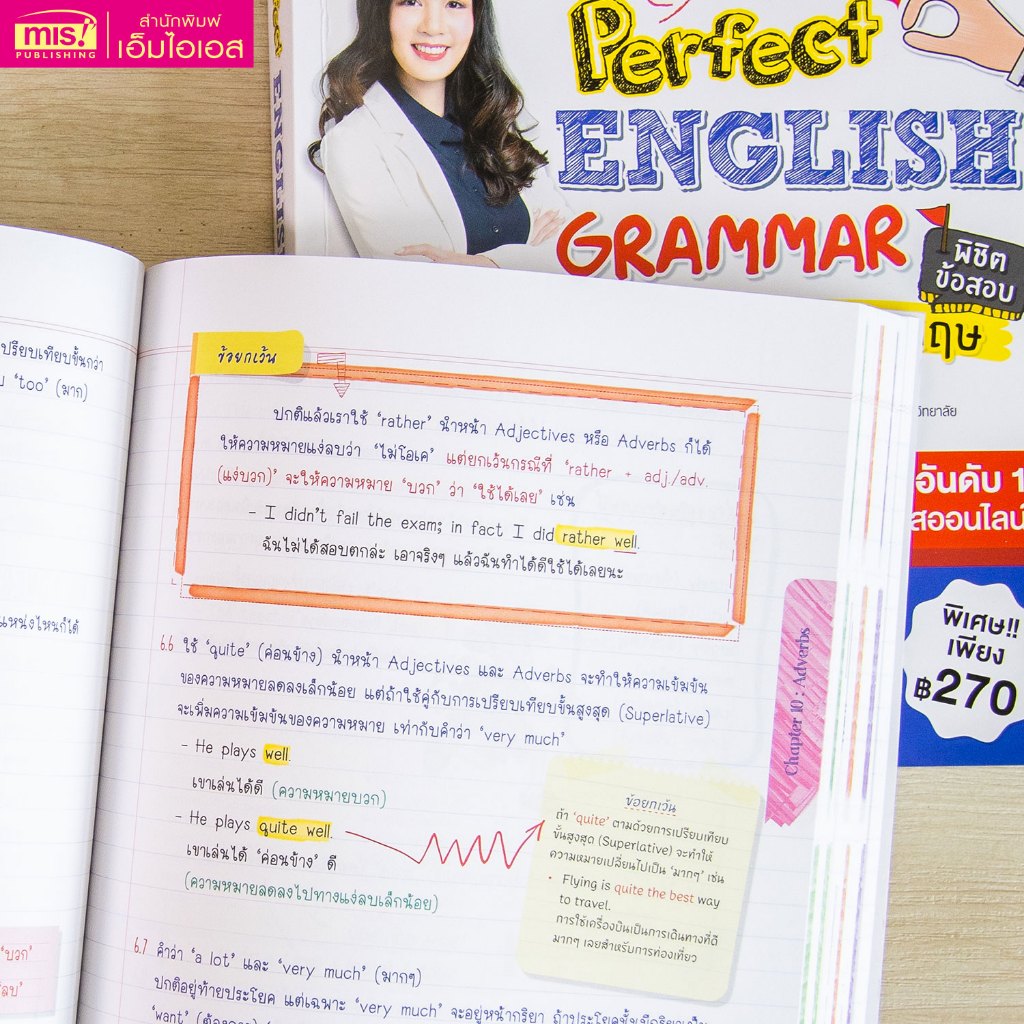 mis!
PUBLISHING
สำนักพิมพ์
เอ็มไอเอส
Perfect
ENGLISH
GRAMMAR
พิชิต
ข้อสอบ
ENGLIS
วิทยาลัย
อันดับ 1
พิเศษ!!
เพียง
฿270
ปรียบเทียบขั้นกว่า
'too' (มาก)
แหน่งไหนก็ได้
'บวก'
ข้อยกเว้น
ปกติแล้วเราใช้ 'rather' นำหน้า Adjectives หรือ Adverbs ก็ได้
ให้ความหมายแง่ลบว่า 'ไม่โอเค' แต่ยกเว้นกรณีที่ 'rather + adj./adv.
(แง่บวก)' จะให้ความหมาย 'บวก' ว่า 'ใช้ได้เลย' เช่น
- I didn't fail the exam; in fact I did rather well.
ฉันไม่ได้สอบตกล่ะ เอาจริงๆ แล้วฉันทำได้ดีใช้ได้เลยนะ
6.6 ใช้ 'quite' (ค่อนข้าง) นำหน้า Adjectives และ Adverbs จะทำให้ความเข้มข้น
ของความหมายลดลงเล็กน้อย แต่ถ้าใช้คู่กับการเปรียบเทียบขั้นสูงสุด (Superlative)
จะเพิ่มความเข้มข้นของความหมาย เท่ากับคำว่า 'very much'
- He plays well.
เขาเล่นได้ดี (ความหมายบวก)
- He plays quite well.
เขาเล่นได้ 'ค่อนข้าง' ดี
(ความหมายลดลงไปทางแง่ลบเล็กน้อย)
ข้อยกเว้น
ถ้า 'quite' ตามด้วยการเปรียบเทียบ
ขั้นสูงสุด (Superlative) จะทำให้
ความหมายเปลี่ยนไปเป็น 'มากๆ' เช่น
• Flying is quite the best way
to travel.
การใช้เครื่องบินเป็นการเดินทางที่ดี
มากๆ เลยสำหรับการท่องเที่ยว
6.7 คำว่า 'a lot' และ 'very much' (มากๆ)
ปกติอยู่ท้ายประโยค แต่เฉพาะ 'very much' จะอยู่หน้ากริยา ถ้าประโยคนั้นมีกริยาเป็น
'want'
Chapter 10 : Adverbs